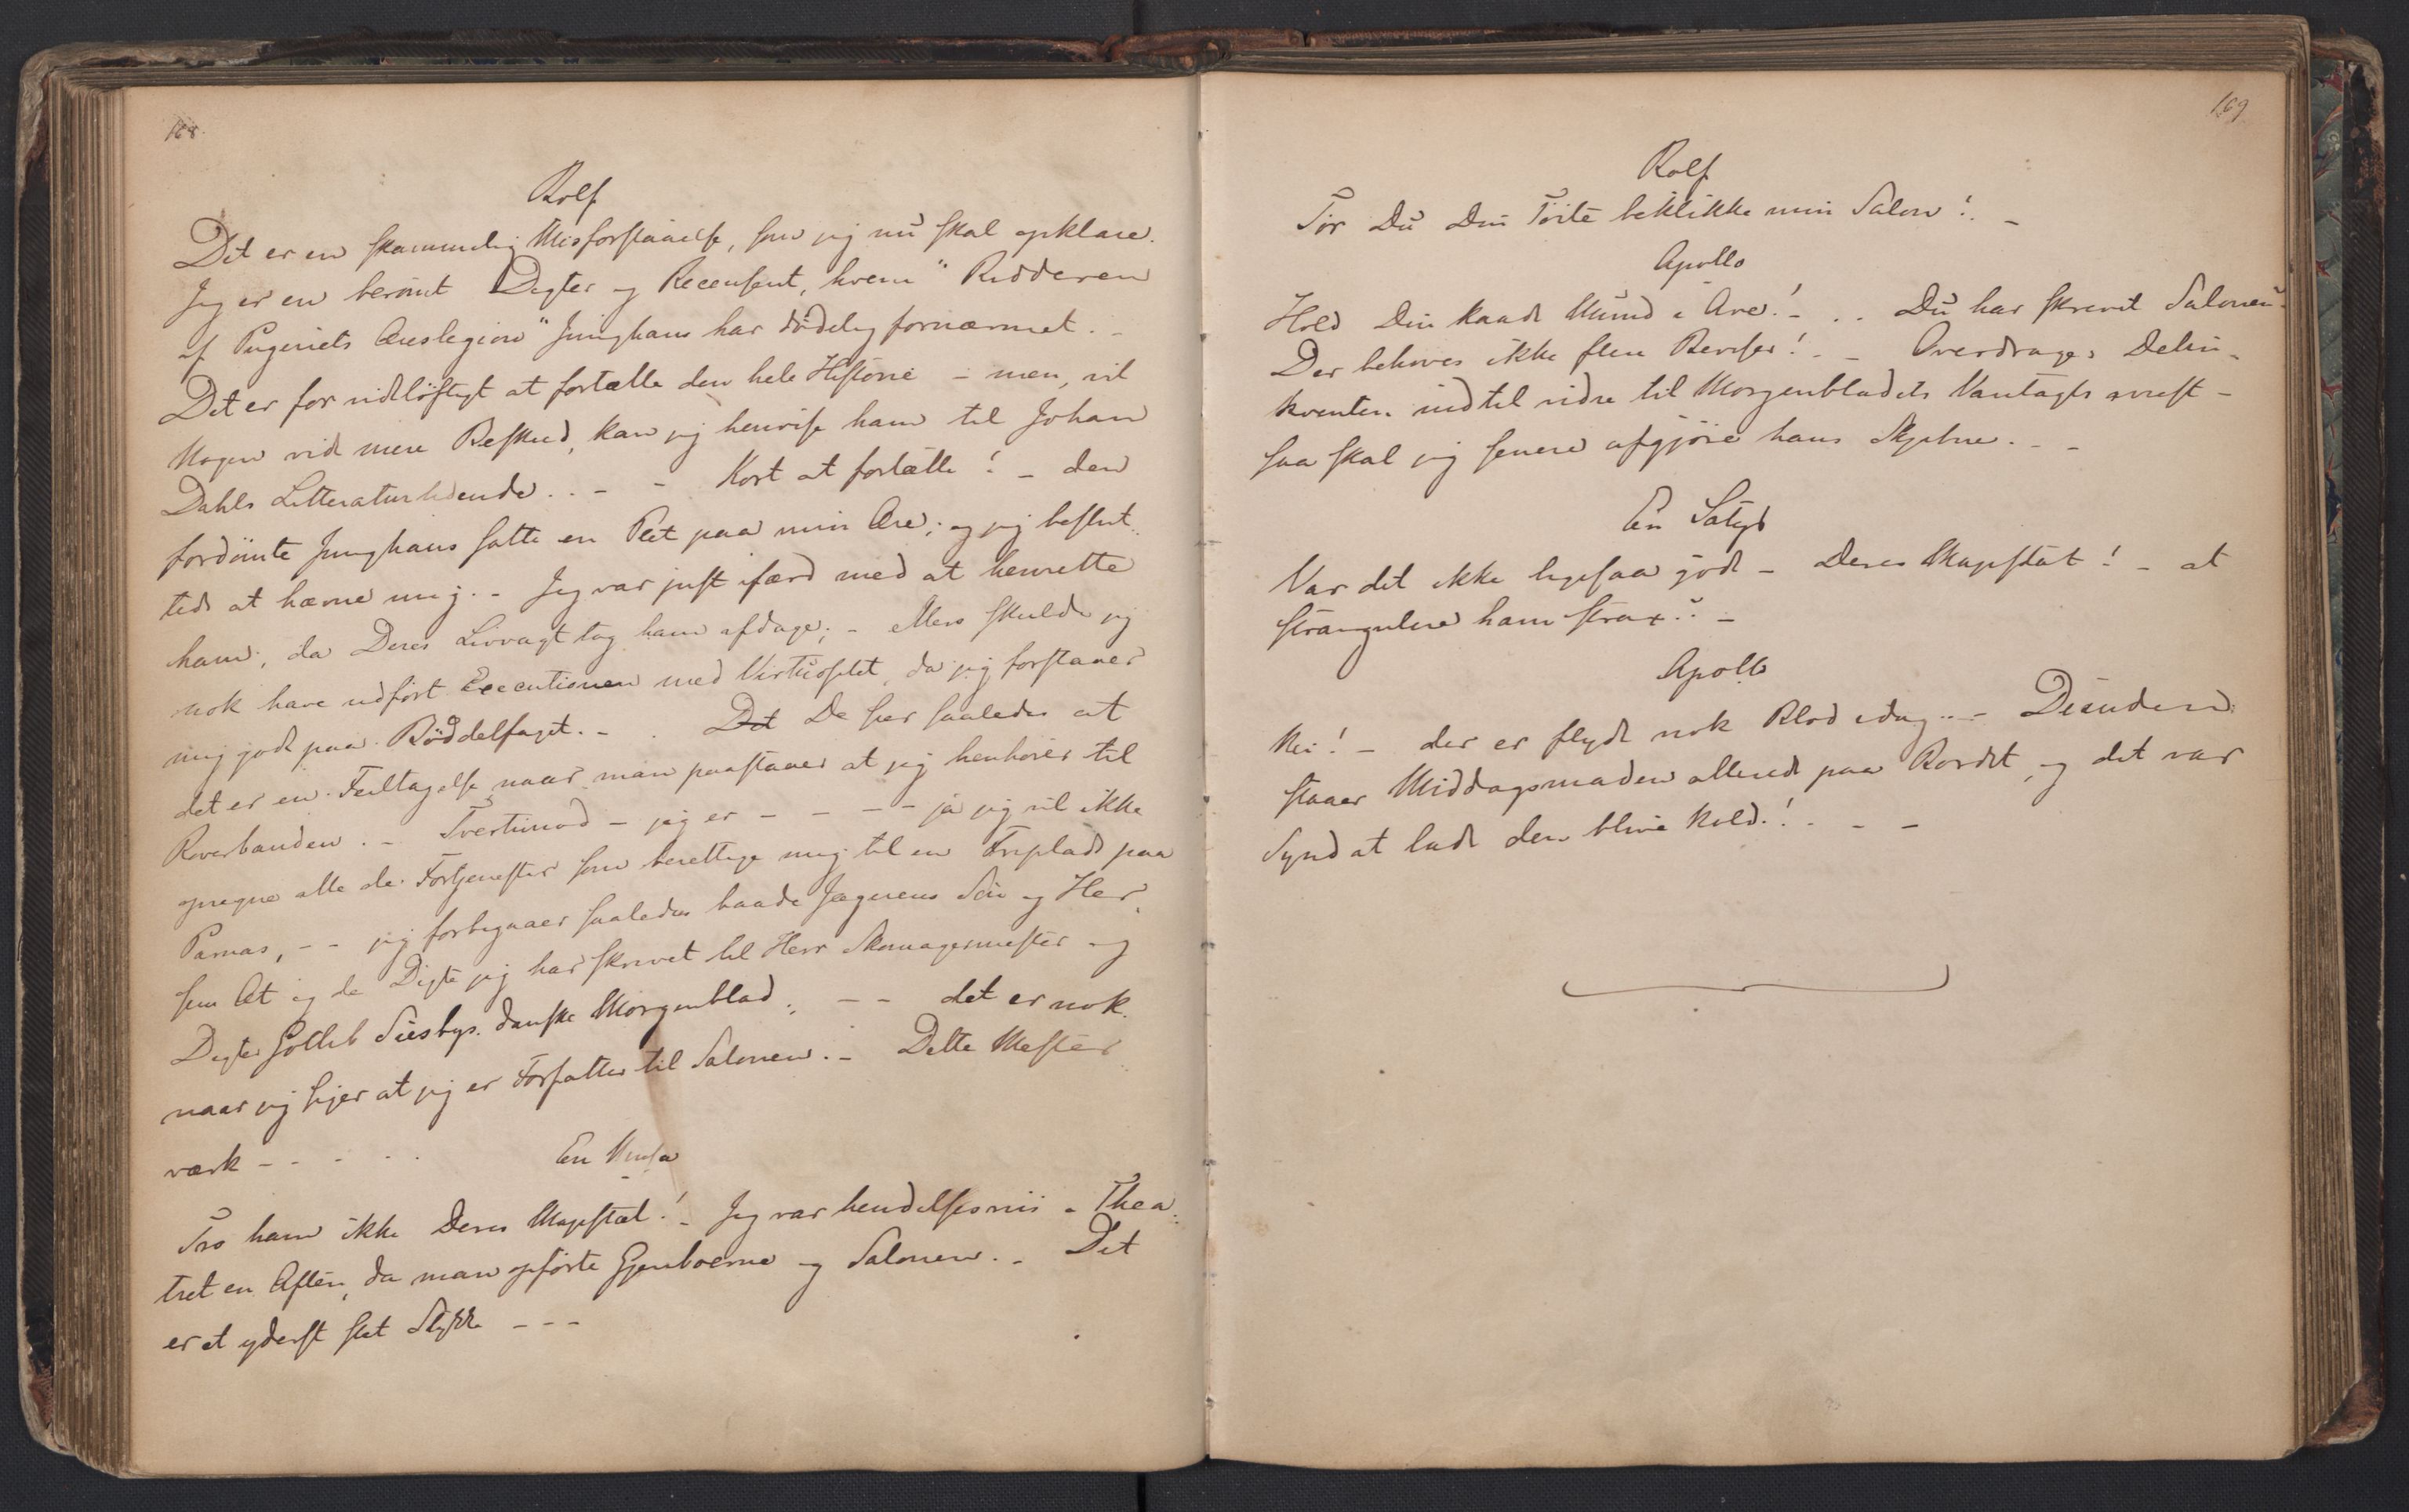 168.
Rolf
Det er en skammelig Misforstaaelse, som jeg nu skal opklare.
Jeg er en berömt Digter og Recensent, hvem "Ridderen
af Pugeriets Æreslegion" Junghans har dödelig fornærmet. –
Det er for vidtlöftigt at fortælle den hele Historie – men, vil
Nogen vide mere Besked, kan jeg henvise ham til Johan
Dahls Litteraturtidende. . – – Kort at fortælle! – den
fordömte Junghans satte en Plet paa min Ære; og jeg beslut-
tede at hævne mig. – Jeg var just ifærd med at henrette
ham, da Deres Livvagt tog ham afdage; – ellers skulde jeg
nok have udfört Executionen med Virtuositet, da jeg forstaaer
mig godt paa Böddelfaget. – . Det De seer saaledes at
det er en Feiltagelse, naar man paastaaer at jeg henhörer til
Röverbanden. – Tvertimod – jeg er – – – – ja jeg vil ikke
opregne alle de Fortjenester som berettige mig til en Friplads paa
Parnas, – – jeg forbigaaer saaledes baade Jægerens Sön og Her-
sem At og de Digte jeg har skrevet til Herr Skomagermester og
Digter Gotlieb Siesbys danske Morgenblad; – – det er nok
naar jeg siger at jeg er Forfatter til Salonen. – Dette Mester
værk – – – . .
En Musa
Tro ham ikke Deres Majestæt! – Jeg var hendelsesviis i Thea-
tret en Aften, da man opförte Gjenboerne og Salonen. – Det
er et yderst slet Stykke – – –
169
Rolf
Tör Du Din Töite beklikke min Salon! –
Apollo
Hold Din kaade Mund i Ave! – . . Du har skrevet Salonen
Der behöves ikke flere Beviser! – – Overdrages Delin-
kventen indtil videre til Morgenbladets Varetægts
saa skal jeg senere afgjöre hans Skjebne. – –
En Satyr
Var det ikke ligesaa godt – Deres Majestæt! – at
strangulere ham strax? –
Apollo
Nei! – der er flydt nok Blod idag. – Desuden
staaer Middagsmaden allerede paa Bordet, og det var
Synd at lade den blive kold! – – –